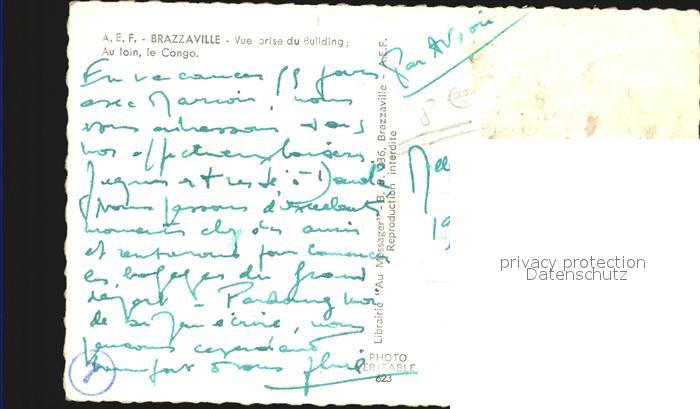 A. E. F. - BRAZZAVILLE - Vue prise du Building;
Au loin, le Congo.
Par Avion
8 €
En vacances 15 jours
avec nous
vous adressons tous
nos affectueux baisers
Jacques est resté à
Nous passons d'excellents
moments chez des amis
et rentrerons pour commencer
les bagages du grand
départ - Pardonnez moi
de si peu écrire, nous
pensons cependant
bien fort à vous
Librairie "Au Messager" - B. P. 236, Brazzaville - A.E.F.
Reproduction interdite
PHOTO
VERITABLE
623
privacy protection
Datenschutz